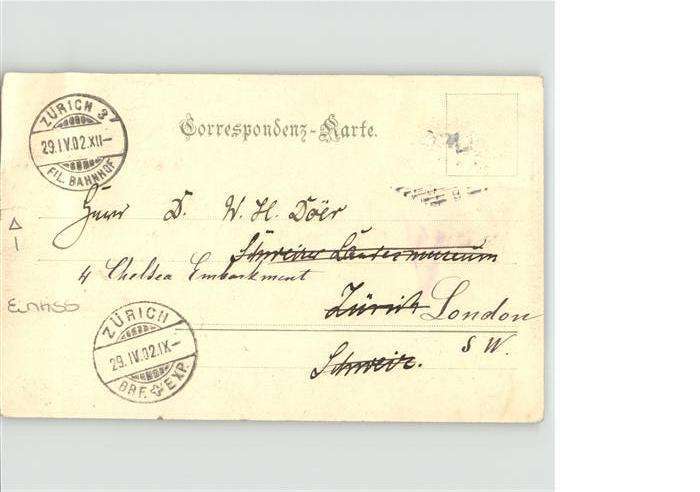 ZÜRICH 3
29.IV.02.XII–
FIL. BAHNHOF
Correspondenz-Karte.
Herrn D. W. H. Doer
Schweizer Landesmuseum
4 Chelsea Embankment
Zürich London
S W.
Schweiz.
ZÜRICH
29.IV.02.IX–
BRF. EXP.